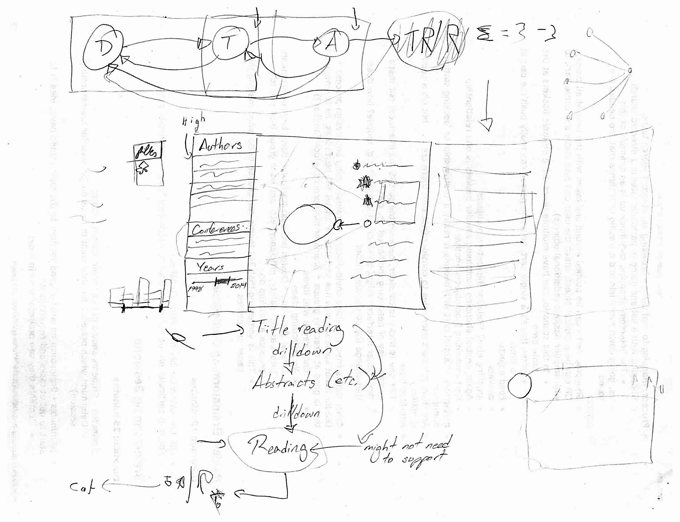 D T A TR/R Σ = 3 - 3
High
Authors
Conferences..
Years
2014
Title reading
drilldown
Abstracts (etc.)
drilldown
Reading
might not need
to support
cat